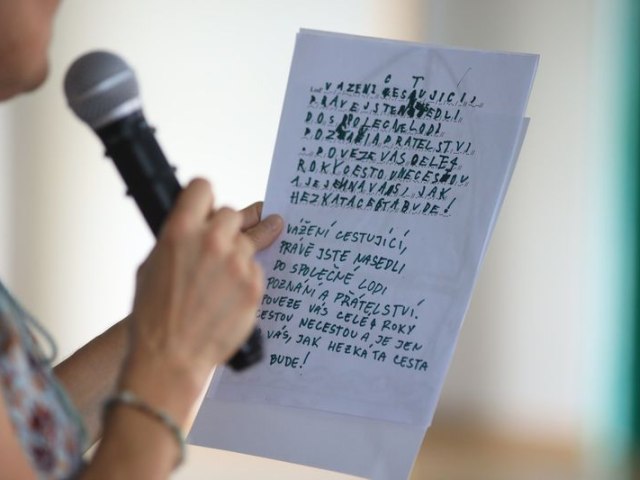 C T
VÁŽENÍ CESTUJÍCÍ,
PRÁVĚ JSTE
DO SPOLEČNÉ LODI
POZNÁNÍ A PŘÁTELSTVÍ
. POVEZE VÁS CELÉ 4
ROKY CESTO
A JE JEN NA VÁS, JAK
HEZKÁ TA CESTA BUDE!
VÁŽENÍ CESTUJÍCÍ,
PRÁVĚ JSTE NASEDLI
DO SPOLEČNÉ LODI
POZNÁNÍ A PŘÁTELSTVÍ.
POVEZE VÁS CELÉ 4 ROKY
CESTOU NECESTOU A JE JEN
VÁS, JAK HEZKÁ TA CESTA
BUDE!